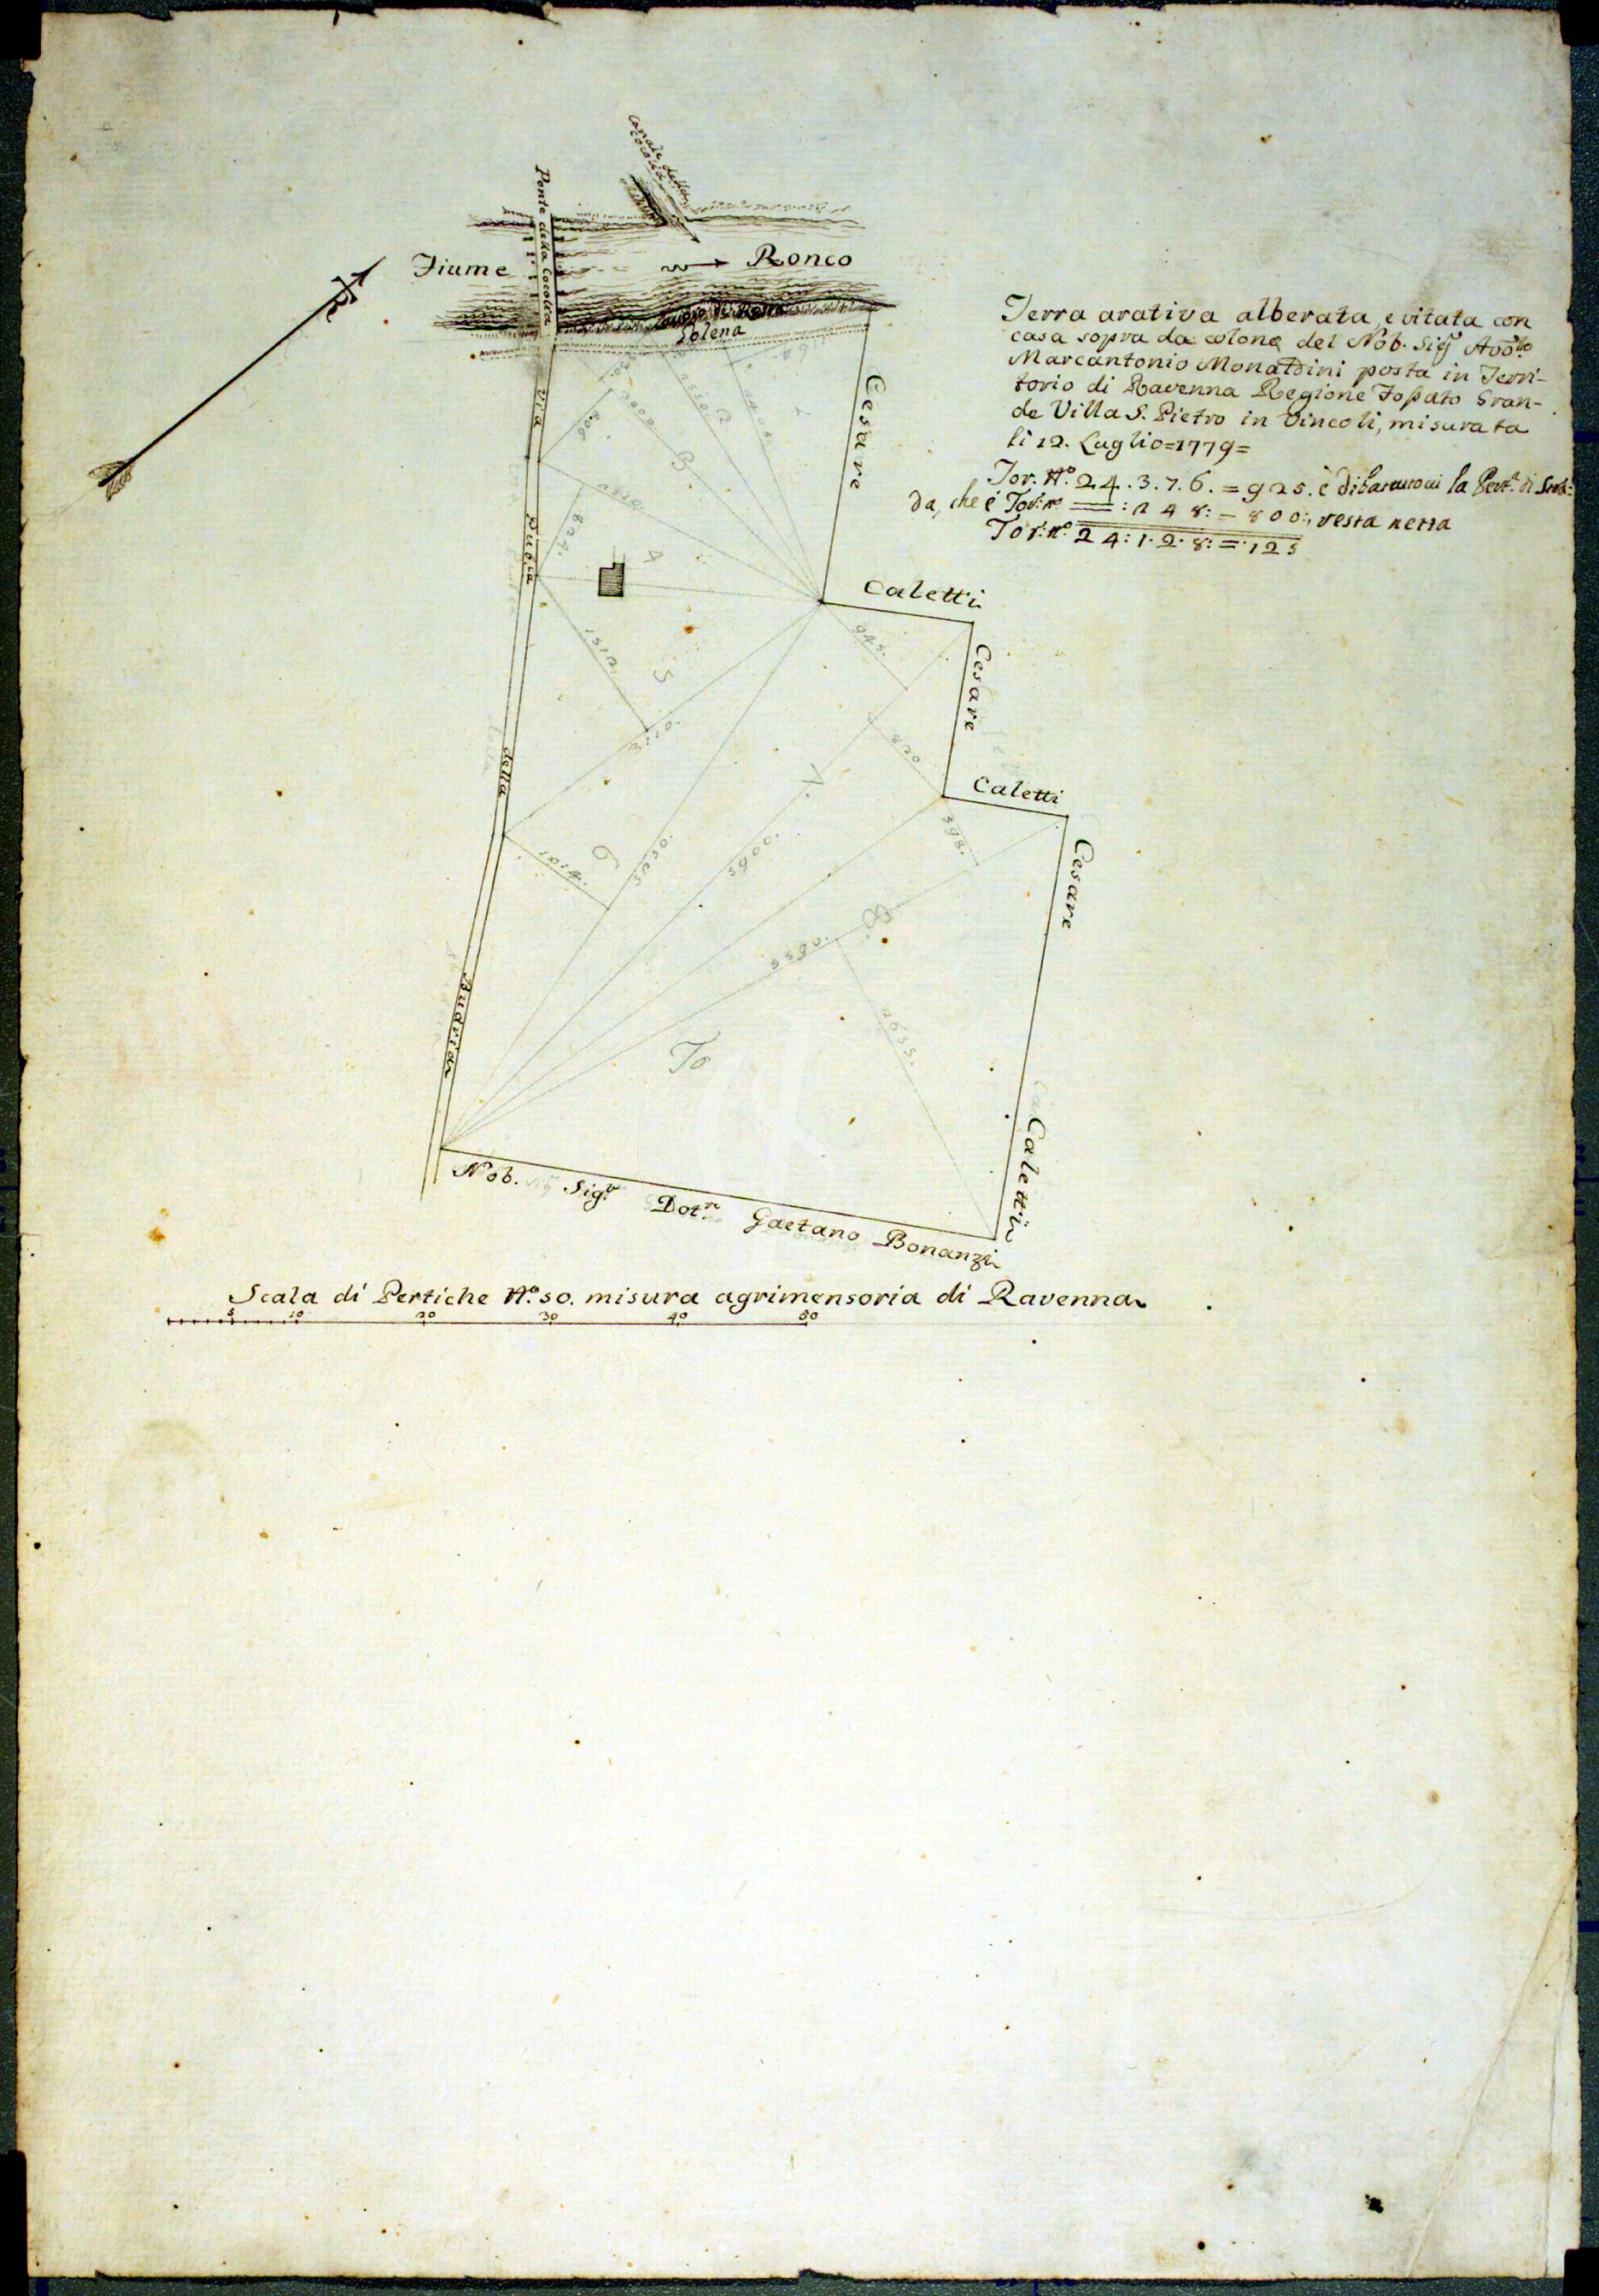 Canale della
Cocolia
Ponte della Cocolia
Fiume
Ronco
Golena
Via
Pu.ca
della
Budria
Cesare
Caletti
Cesare
Caletti
Cesare
Caletti
Terra arativa alberata, e vitata con
casa sopra da colono del Nob. Sig.
Marcantonio Monaldini posta in Terri-
torio di Ravenna Regione Fossato Gran-
de Villa S. Pietro in Vincoli, misurata
li 12. Luglio=1779=
Tor. N.º 24.3.7.6.=925. è la di
da, che é Tor: nº =: 2 4 8: = 800:, resta netta
Tor: nº. 24:1.2.8:=:125
1
2
3
4
5
6
7.
8.
To
2310.
827.
1512.
3110.
1014.
3230.
3900.
945.
820
398.
3590.
2635.
Nob. Sig.r Dot.re Gaetano Bonanzi
Scala di Pertiche N.º 50. misura agrimensoria di Ravenna
5 10 20 30 40 50